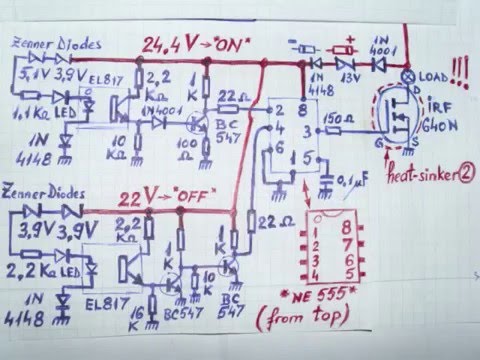 Zenner Diodes
24,4V → "ON"
5,1V 3,9V
EL817
2,2 KΩ
1 K
1N 4148
13V
1N 4001
LOAD !!!
1,1KΩ LED
1N4001
22 Ω
2 8
4 3
6
1 5
150Ω
D
G S
iRF 640N
1N 4148
10 KΩ
100 Ω
BC 547
0,1µF
heat-sinker ②
Zenner Diodes
22V → "OFF"
3,9V 3,9V
2,2 KΩ
1 K
1 K
22 Ω
2,2 KΩ LED
1N 4148
EL817
16 K
BC547
10 K
BC 547
1 8
2 7
3 6
4 5
"NE 555"
(from top)